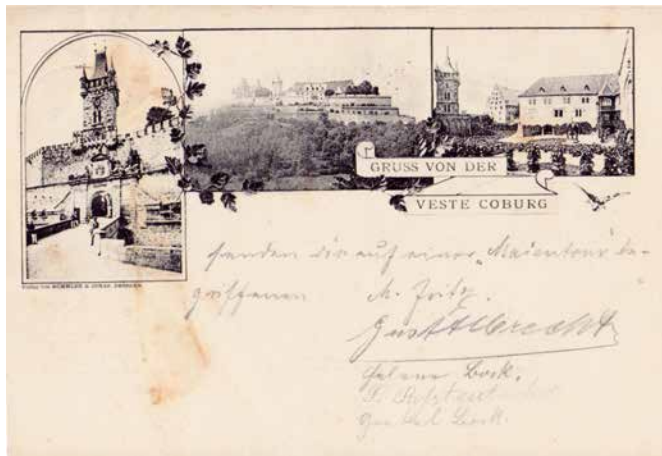 GRUSS VON DER
VESTE COBURG
Verlag von RÖMMLER & JONAS, DRESDEN.
senden die auf einer „Maientour" be-
griffenen M. Fritz.
Gust Albrecht
Helene Bock.
Gretel Bock.